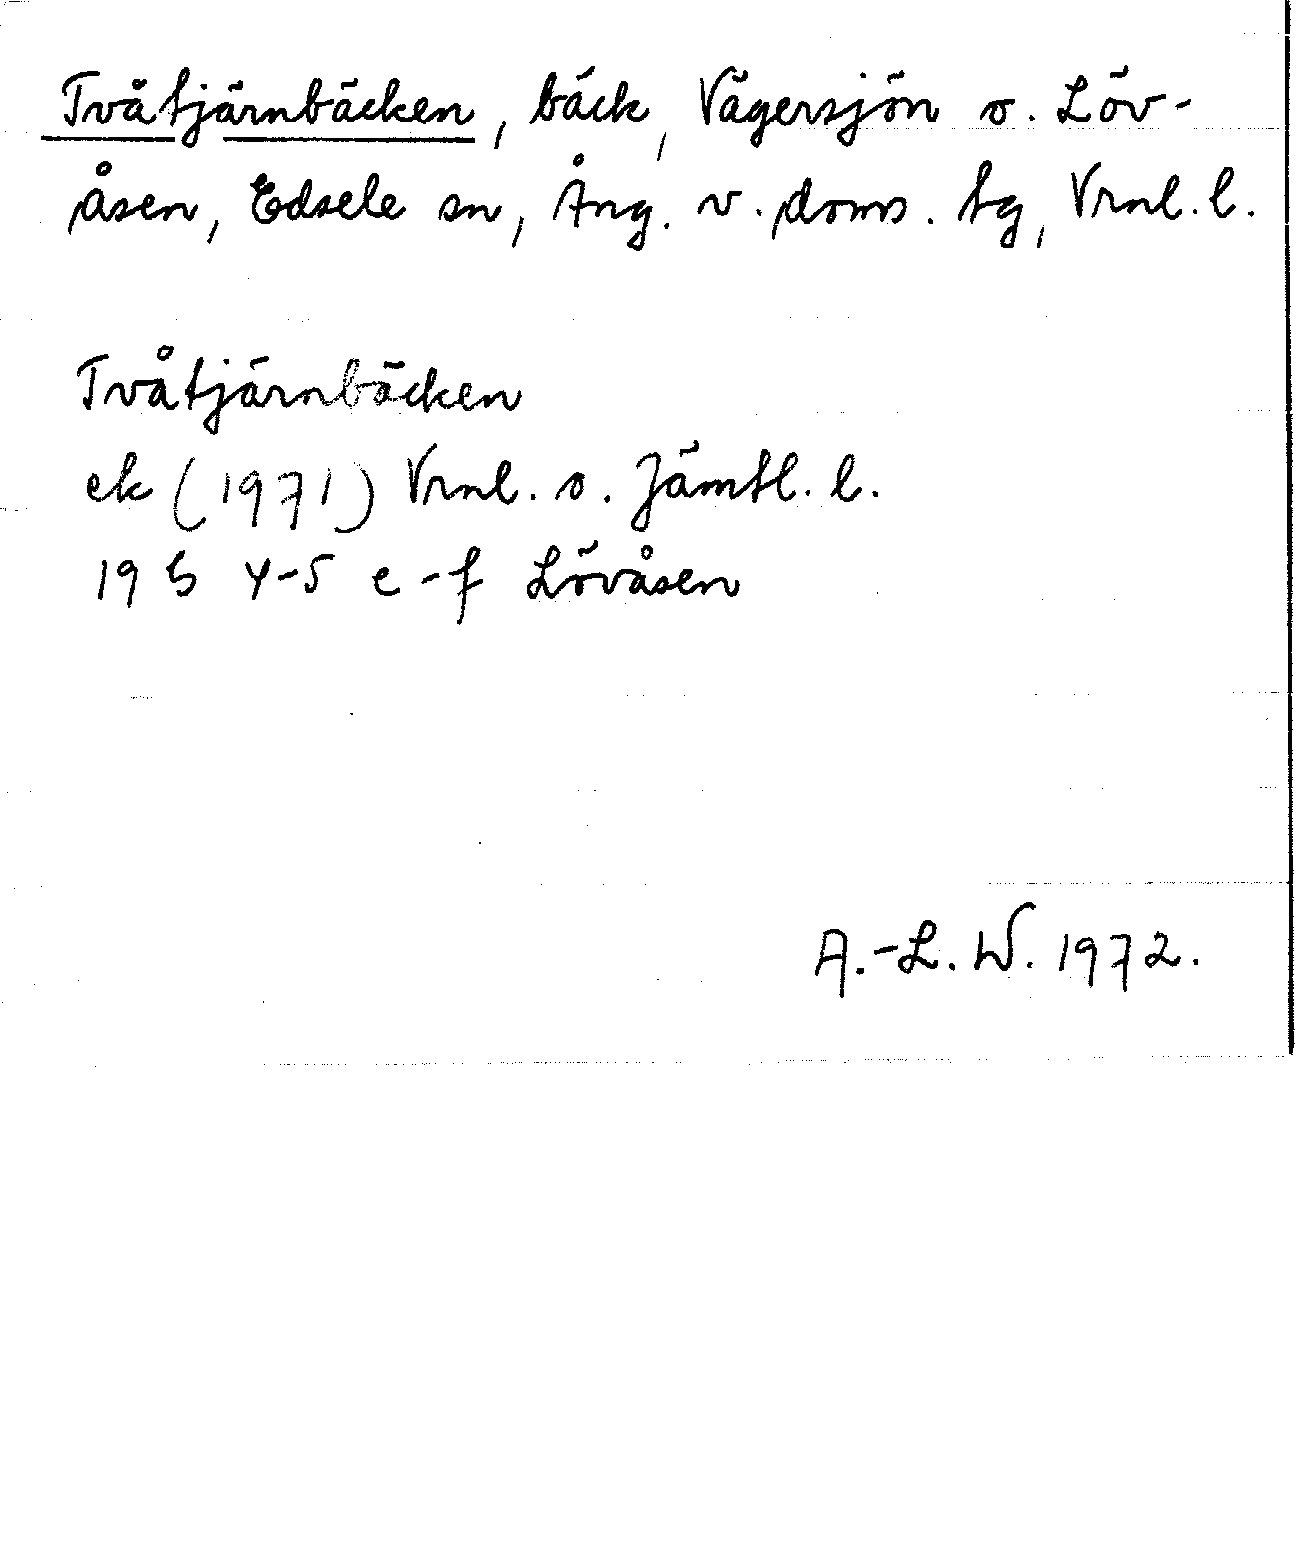 Tvåtjärnbäcken, bäck, Vägersjön o. Löv-
åsen, Edsele sn, Ång. v. doms. tg, Vrnl. l.
Tvåtjärnbäcken
ek (1971) Vrnl. o. Jämtl. l.
19 G 4-5 e-f Lövåsen
A.-L. W. 1972.